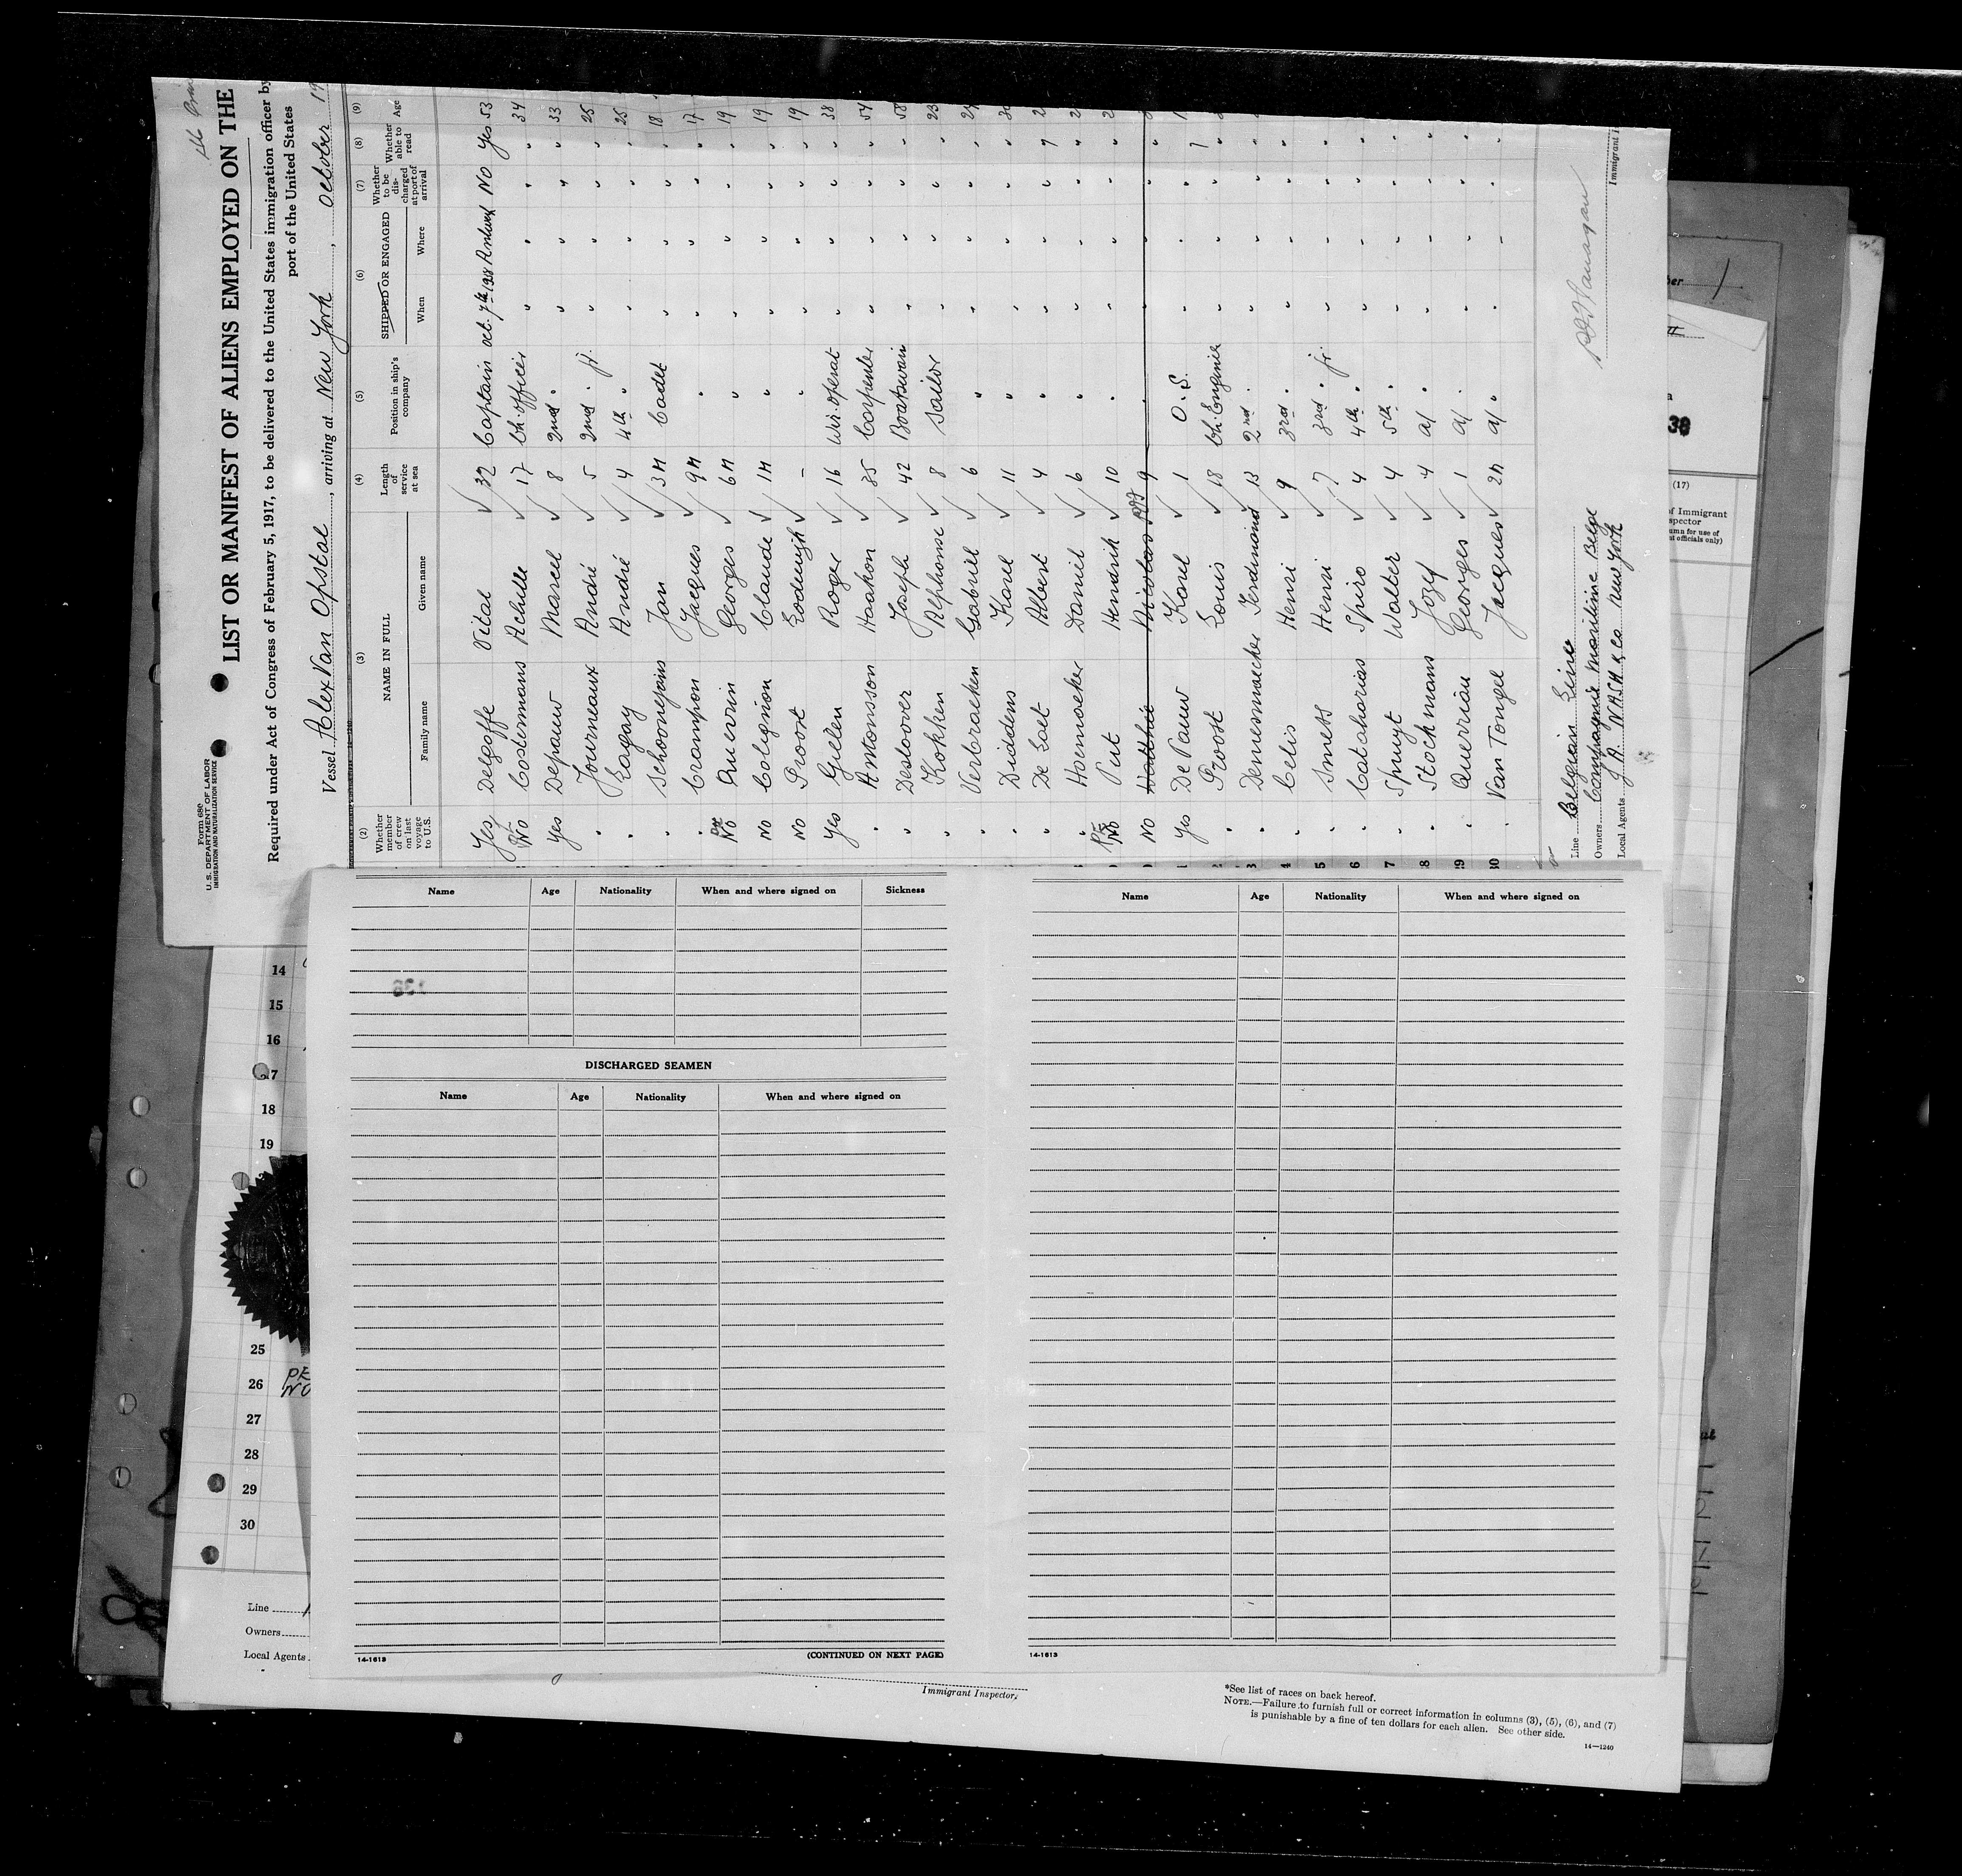 Form 680
U. S. DEPARTMENT OF LABOR
IMMIGRATION AND NATURALIZATION SERVICE
LIST OR MANIFEST OF ALIENS EMPLOYED ON THE
Required under Act of Congress of February 5, 1917, to be delivered to the United States immigration officer by
port of the United States
Vessel Alex Van Opstal, arriving at New York, October 19
(2) (3) (4) (5) (6) (7) (8) (9)
Whether member of crew on last voyage to U.S. NAME IN FULL Length of service at sea Position in ship's company SHIPPED OR ENGAGED Whether to be discharged at port of arrival Whether able to read Age
Family name Given name When Where
Yes Delgoffe Vital 32 Captain oct. 7th 1938 Antwerp No Yes 53
No Costermans Achille 17 Ch. officer " " " " 34
Yes Depauw Marcel 8 2nd " " " " " 33
" Journeaux André 5 2nd " jr. " " " " 25
" Lagay André 4 4th " " " " " 25
" Schoonejans Jan 3M Cadet " " " " 18
" Crampon Jacques 9M " " " " " 17
No Georges 6M " " " " " 19
No Colignon Claude 1M " " " " " 19
No Proost Lodewijk - " " " " " 19
Yes Gielen Roger 16 Wir. operat " " " " 38
" Antonsson Haakon 35 Carpenter " " " " 54
" Destoover Joseph 42 Boatswain " " " " 58
" Kokken Alphonse 8 Sailor " " " " 23
" Verbraeken Gabriel 6 " " " " "
" Diddens Karel 11 " " " " "
" De Laet Albert 4 " " " " "
" Hoernaeker Daniel 6 " " " " "
No Put Hendrik 10 " " " " "
No Nicolas 9 " " " " "
Yes De Pauw Karel 1 O.S. " " " "
2 " Proost Louis 18 Ch. Engineer " " " "
3 " Dennenmaecker Ferdinand 13 2nd " " " " "
4 " Celis Henri 9 3rd " " " " "
5 " Smets Henri 7 3rd " jr. " " " "
6 " Cataharias Spiro 4 4th " " " " "
7 " Spruyt Walter 4 5th " " " " "
8 " Stockmans Jozef 4 a/ " " " " "
29 " Querriau Georges 1 a/ " " " " "
30 " Van Tongel Jacques 2M a/ " " " " "
Line Belgian Line
Owners Compagnie Maritime Belge
Local Agents J. A. NASH & Co New York
Immigrant I
38
(17)
of Immigrant
spector
umn for use of
t officials only)
14
15
16
17
18
19
25
26 NO
27
28
29
30
Line
Owners
Local Agents
Name Age Nationality When and where signed on Sickness
DISCHARGED SEAMEN
Name Age Nationality When and where signed on
14-1613
(CONTINUED ON NEXT PAGE)
Name Age Nationality When and where signed on
14-1613
Immigrant Inspector.
*See list of races on back hereof.
NOTE.—Failure to furnish full or correct information in columns (3), (5), (6), and (7)
is punishable by a fine of ten dollars for each alien. See other side.
14—1240